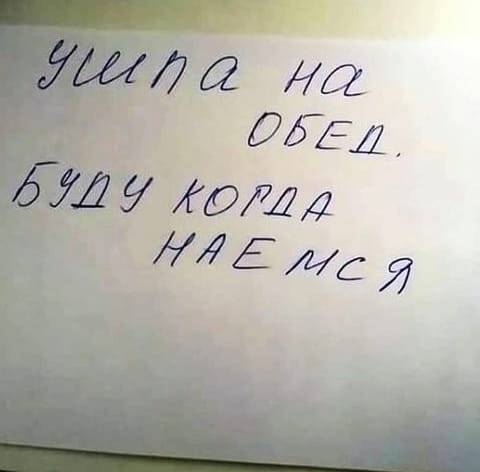 ушла на
ОБЕД.
БУДУ КОГДА
НАЕМСЯ